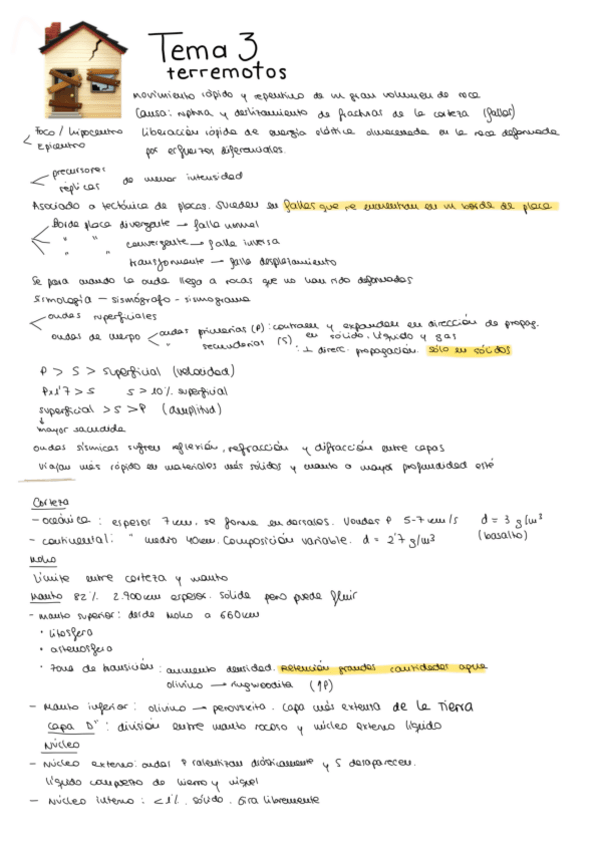 Tema 3
terremotos
movimiento rápido y repentino de un gran volumen de roca
Causa: ruptura y deslizamiento de fracturas de la corteza (fallas)
Foco / hipocentro
Epicentro
liberación rápida de energía elástica almacenada en la roca deformada
por esfuerzos diferenciales.
precursores
réplicas
de menor intensidad
Asociado a tectónica de placas. Suceden en fallas que se encuentran en un borde de placa
Borde placa divergente → falla normal
" " convergente → falla inversa
" " transformante → falla desplazamiento
Se para cuando la onda llega a rocas que no han sido deformadas
Sismología – sismógrafo - sismograma
ondas superficiales
ondas de cuerpo
ondas primarias (P): contraen y expanden en dirección de propag.
en sólido, líquido y gas
" secundarias (S): ⊥ direc. propagación. sólo en sólidos
P > S > superficial (velocidad)
Px1'7 > S S > 10% superficial
superficial > S > P (amplitud)
↓
mayor sacudida
ondas sísmicas sufren reflexión, refracción y difracción entre capas
viajan más rápido en materiales más sólidos y cuanto a mayor profundidad esté
Corteza
- oceánica: espesor 7km. se forma en dorsales. Vondas P 5-7 km/s d = 3 g/m³
(basalto)
- continental: " medio 40km. Composición variable. d = 2'7 g/m³
Moho
Límite entre corteza y manto
Manto 82% 2.900km espesor. sólida pero puede fluir
- manto superior: desde Moho a 660km
· litosfera
· astenosfera
· zona de transición: aumento densidad. Retención grandes cantidades agua
olivino → ringwoodita (↑P)
- Manto inferior: olivino → perovskita. capa más extensa de la Tierra
Capa D": división entre manto rocoso y núcleo externo líquido
Núcleo
- Núcleo externo: ondas P ralentizan drásticamente y S desaparecen.
líquido compuesto de hierro y níquel
- Núcleo interno: <1%. sólido. Gira libremente